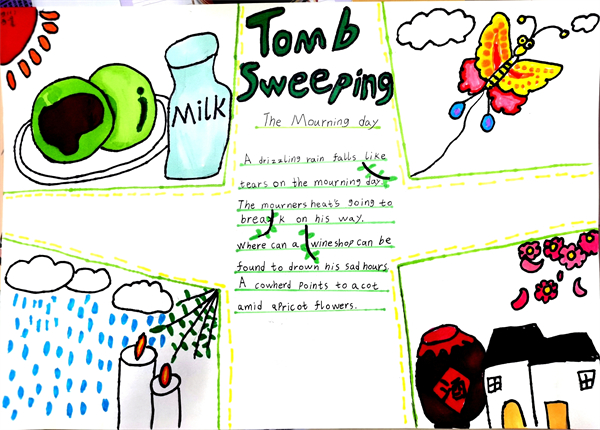 Tomb
Sweeping
MilK
The Mourning day
A drizzling rain falls like
tears on the mourning day.
The mourners heat's going to
break k on his way.
where can a wineshop can be
found to drown his sad hours.
A cowherd points to a cot
amid apricot flowers.
酒